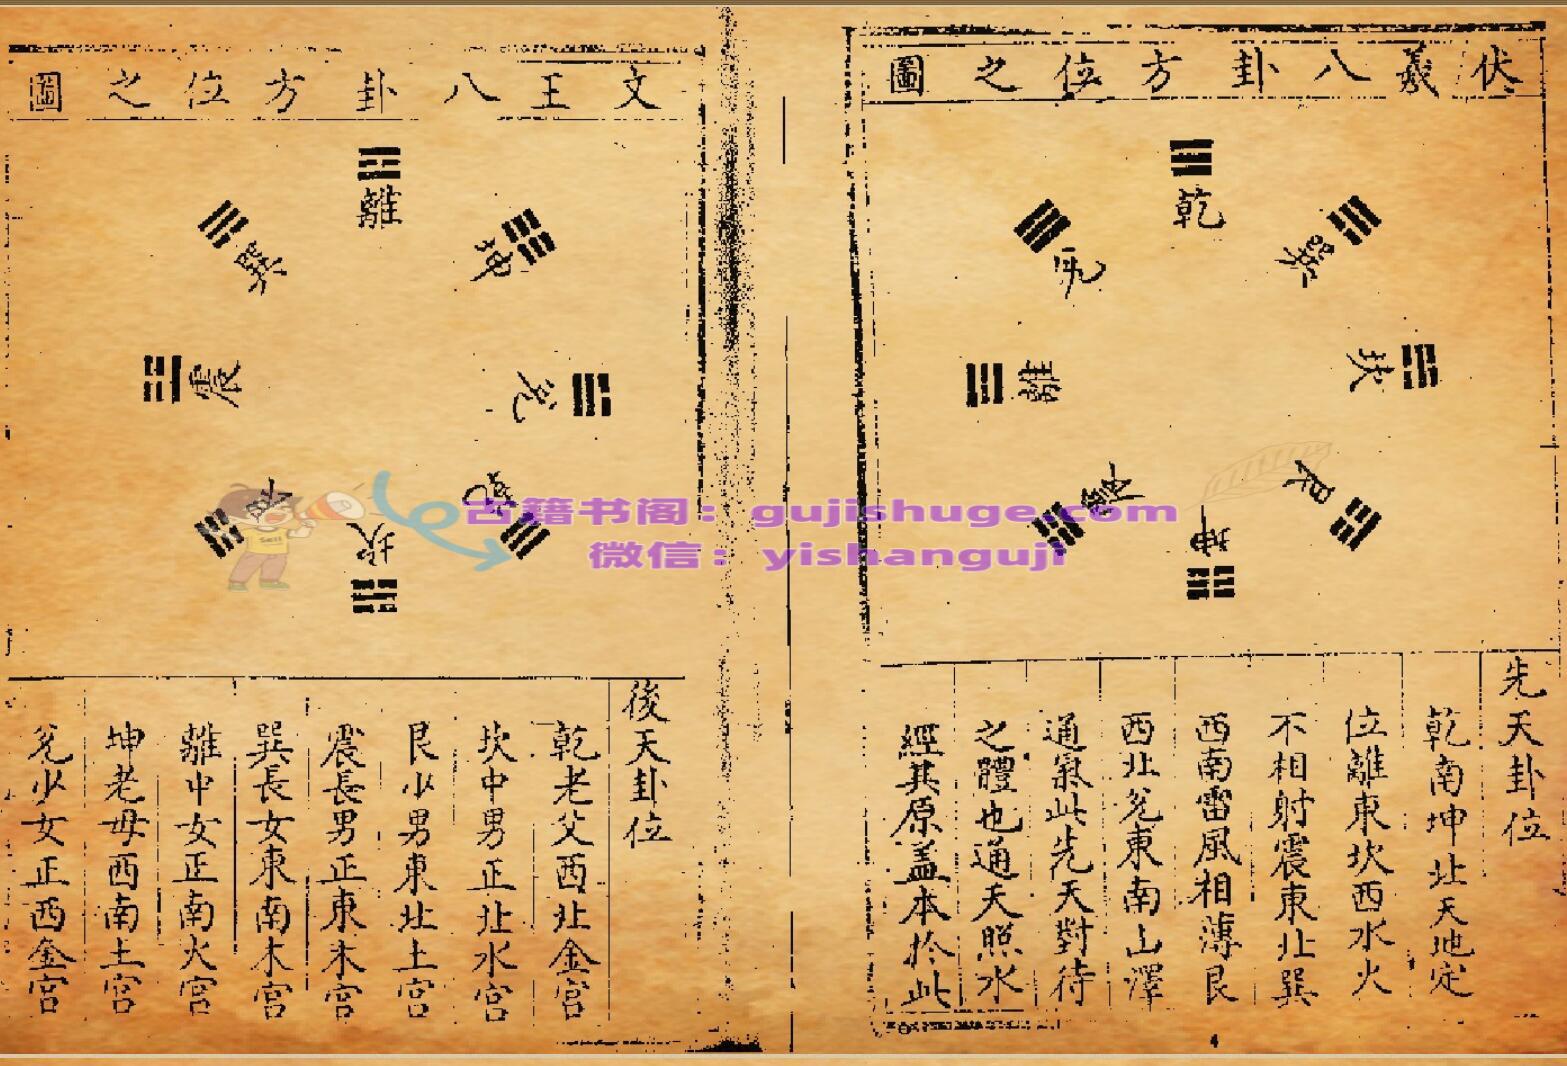 伏羲八卦方位之圖
乾
兌
巽
離
坎
震
艮
坤
先天卦位
乾南坤北天地定
位離東坎西水火
不相射震東北巽
西南雷風相薄艮
西北兌東南山澤
通氣此先天對待
之體也通天照水
經其原蓋本於此
4
文王八卦方位之圖
離
巽
坤
震
兌
艮
乾
坎
後天卦位
乾老父西北金宮
坎中男正北水宮
艮少男東北土宮
震長男正東木宮
巽長女東南木宮
離中女正南火宮
坤老母西南土宮
兌少女正西金宮
古籍书阁：gujishuge.com
微信：yishanguji